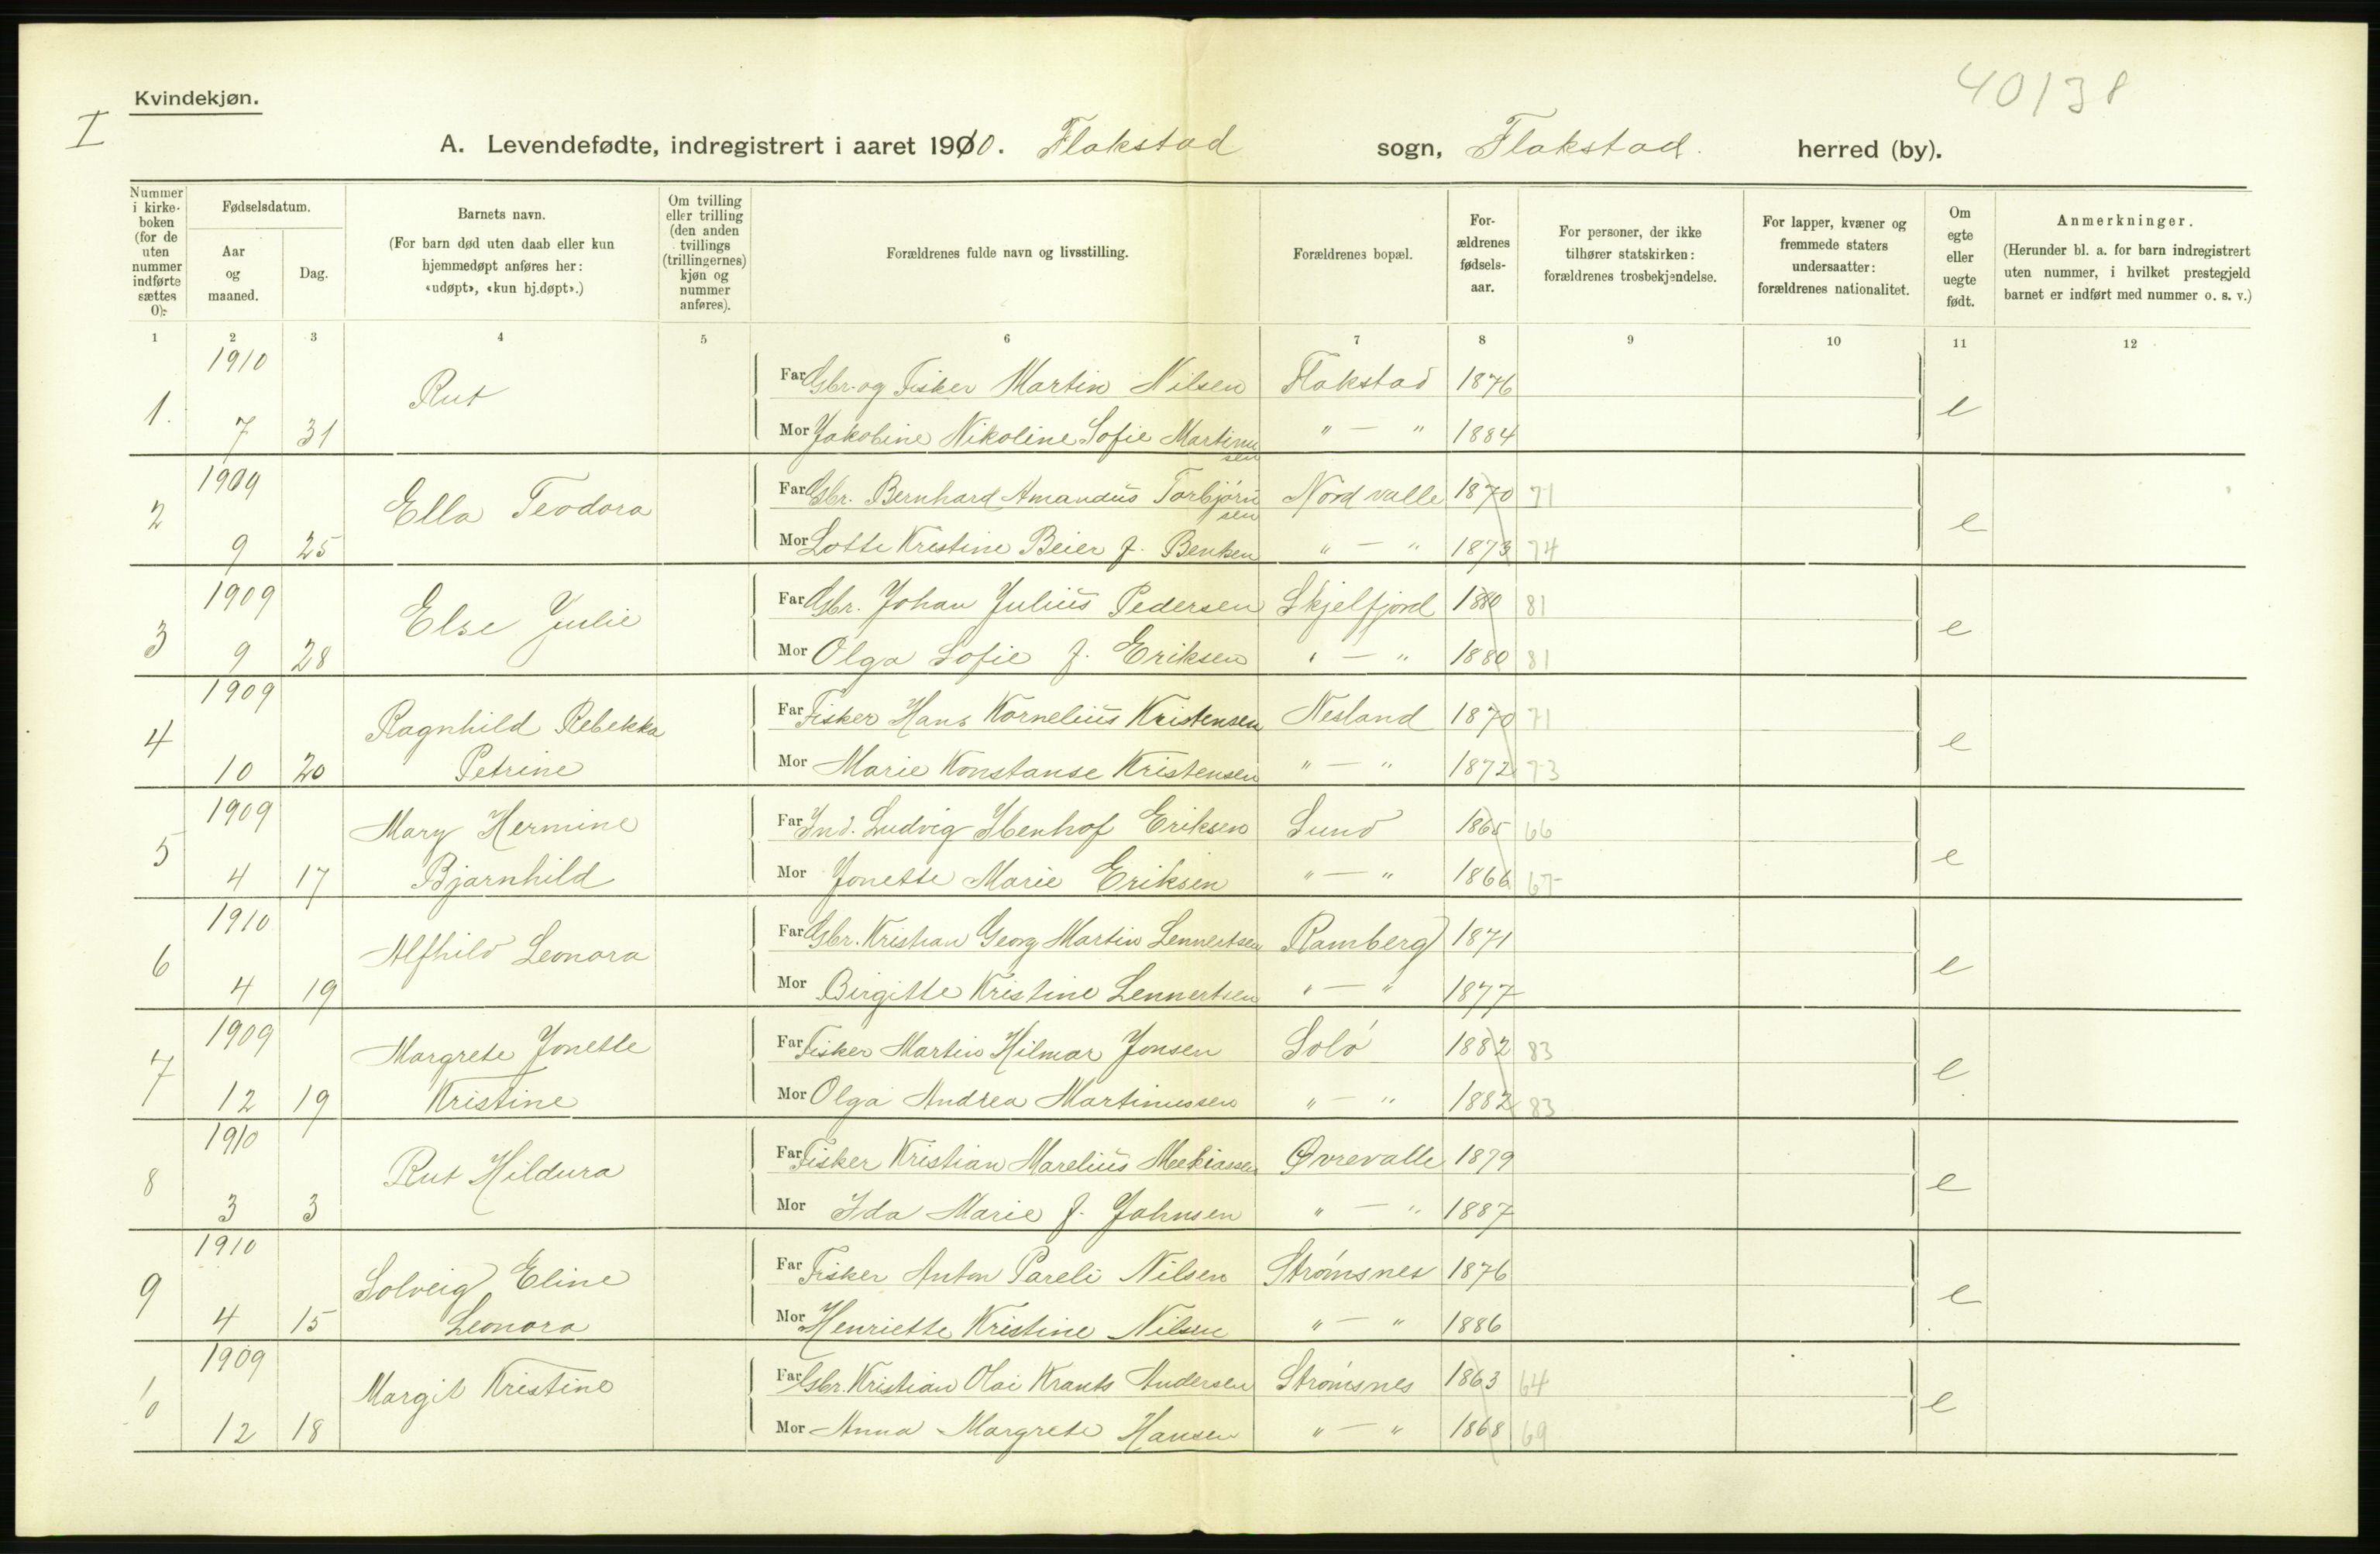 40138
Kvindekjøn.
I
A. Levendefødte, indregistrert i aaret 1910. Flakstad sogn, Flakstad. herred (by).
Nummer i kirkeboken (for de uten nummer indførte sættes 0):
Fødselsdatum.
Aar og maaned.
Dag.
Barnets navn.
(For barn død uten daab eller kun hjemmedøpt anføres her: «udøpt», «kun hj.døpt».)
Om tvilling eller trilling (den anden tvillings (trillingernes) kjøn og nummer anføres).
Forældrenes fulde navn og livsstilling.
Forældrenes bopæl.
Forældrenes fødselsaar.
For personer, der ikke tilhører statskirken: forældrenes trosbekjendelse.
For lapper, kvæner og fremmede staters undersaatter: forældrenes nationalitet.
Om egte eller uegte født.
Anmerkninger.
(Herunder bl. a. for barn indregistrert uten nummer, i hvilket prestegjeld barnet er indført med nummer o. s. v.)
1 2 3 4 5 6 7 8 9 10 11 12
1. 1910 7 31 Rut
Far Gbr. og Fisker Martin Nilsen Flakstad 1876 e
Mor Jakobine Nikoline Sofie Martinussen " — " 1884
2 1909 9 25 Ella Teodora
Far Gbr. Bernhard Amandus Torbjørnsen Nordvalle 1870 71 e
Mor Lotte Kristine Beier f. Benksen " — " 1873 74
3 1909 9 28 Else Julie
Far Gbr. Johan Julius Pedersen Skjelfjord 1880 81 e
Mor Olga Sofie f. Eriksen " — " 1880 81
4 1909 10 20 Ragnhild Rebekka Petrine
Far Fisker Hans Kornelius Kristensen Nesland 1870 71 e
Mor Marie Konstanse Kristensen " — " 1872 73
5 1909 4 17 Mary Hermine Bjarnhild
Far Ind. Ludvig Ibenhof Eriksen Sund 1865 66 e
Mor Jonette Marie Eriksen " — " 1866 67
6 1910 4 19 Alfhild Leonora
Far Gbr. Kristian Georg Martin Lennertsen Ramberg 1871 e
Mor Birgitte Kristine Lennertsen " — " 1877
7 1909 12 19 Margrete Jonette Kristine
Far Fisker Martin Hilmar Jonsen Solø 1882 83 e
Mor Olga Andrea Martinussen " — " 1882 83
8 1910 3 3 Rut Hildura
Far Fisker Kristian Marelius Meekiassen Øvrevalle 1879 e
Mor Ida Marie f. Johnsen " — " 1887
9 1910 4 15 Solveig Eline Leonora
Far Fisker Anton Pareli Nilsen Strømsnes 1876 e
Mor Henriette Kristine Nilsen " — " 1886
10 1909 12 18 Margit Kristine
Far Gbr. Kristian Olai Krants Andersen Strømsnes 1863 64 e
Mor Anna Margrete Hansen " — " 1868 69